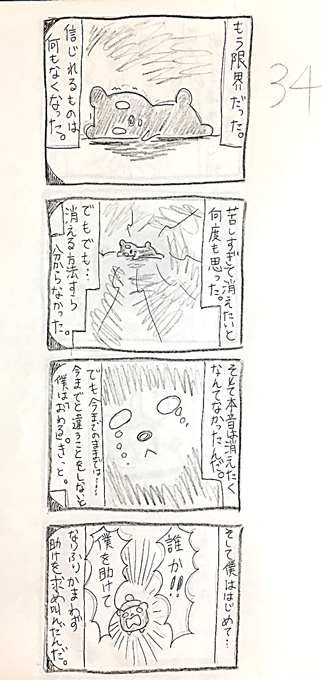 34
もう限界だった。
信じれるものは
何もなくなった。
苦しすぎて消えたいと
何度も思った。
でもでも…
消える方法すら
分からなかった。
そして本音は消えたく
なんてなかったんだ。
でも今までのままでは……
今までと違うことをしないと
僕はおわる。きっと。
そして僕ははじめて…
誰か!!
僕を助けて
なりふりかまわず
助けを求め叫んだんだ。